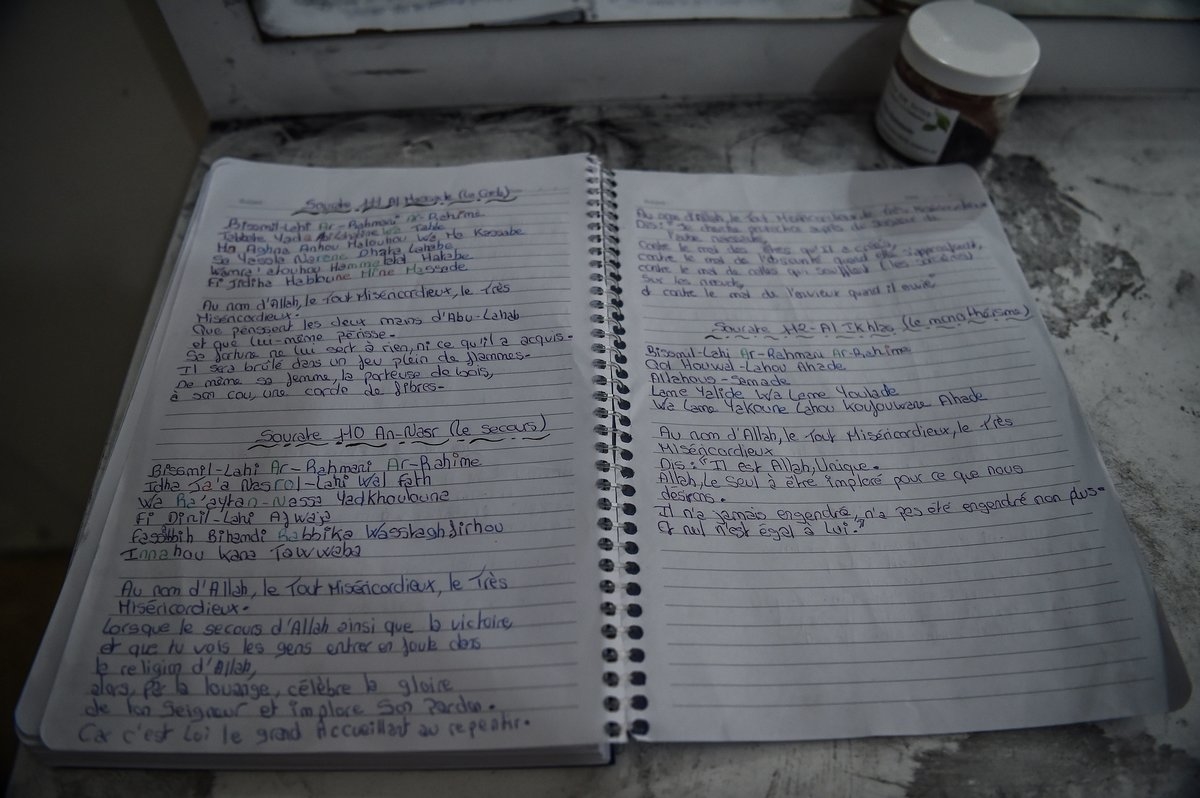 Sourate 111 Al Massade (La Corde)
Bissmil-Lahi Ar-Rahmani Ar-Rahime
Tabbate Yada Abi Lahabine Wa Tabbe
Ma Aghna Anhou Malouhou Wa Ma Kassabe
Sa Yassla Narene Dhata Lahabe
Wamra'atouhou Hammalatal Hatabe
Fi Jidiha Habloune Mine Massade
Au nom d'Allah, le Tout Miséricordieux, le Très
Miséricordieux.
Que périssent les deux mains d'Abu-Lahab
et que lui-même périsse.
Sa fortune ne lui sert à rien, ni ce qu'il a acquis.
Il sera brûlé dans un feu plein de flammes.
De même sa femme, la porteuse de bois,
à son cou, une corde de fibres.
Sourate 110 An-Nasr (le secours)
Bissmil-Lahi Ar-Rahmani Ar-Rahime
Idha Ja'a Nasrol-Lahi Wal Fath
Wa Ra'aytan-Nassa Yadkhouloune
Fi Dinil-Lahi Afwaja
Fassabbih Bihamdi Rabbika Wasstaghfirhou
Innahou Kana Tawwaba
Au nom d'Allah, le Tout Miséricordieux, le Très
Miséricordieux.
Lorsque le secours d'Allah ainsi que la victoire
et que tu vois les gens entrer en foule dans
la religion d'Allah,
alors, par la louange, célèbre la gloire
de ton Seigneur et implore Son Pardon.
Car c'est Lui le grand Accueillant au repentir.
Au nom d'Allah, le Tout Miséricordieux, le Très Miséricordieux
Dis: "Je cherche protection auprès du Seigneur de
l'aube naissante
contre le mal des êtres qu'Il a créés,
contre le mal de l'obscurité quand elle s'approfondit,
contre le mal de celles qui soufflent (les sorcières)
sur les nœuds,
et contre le mal de l'envieux quand il envie"
Sourate 112-Al Ikhlas (le monothéisme)
Bissmil-Lahi Ar-Rahmani Ar-Rahime
Qol Houwal-Lahou Ahade
Allahous-Samade
Lame Yalide Wa Lame Youlade
Wa Lame Yakoune Lahou Koufouwane Ahade
Au nom d'Allah, le Tout Miséricordieux, le Très
Miséricordieux
Dis: "Il est Allah, Unique.
Allah, Le Seul à être imploré pour ce que nous
désirons.
Il n'a jamais engendré, n'a pas été engendré non plus.
Et nul n'est égal à Lui."